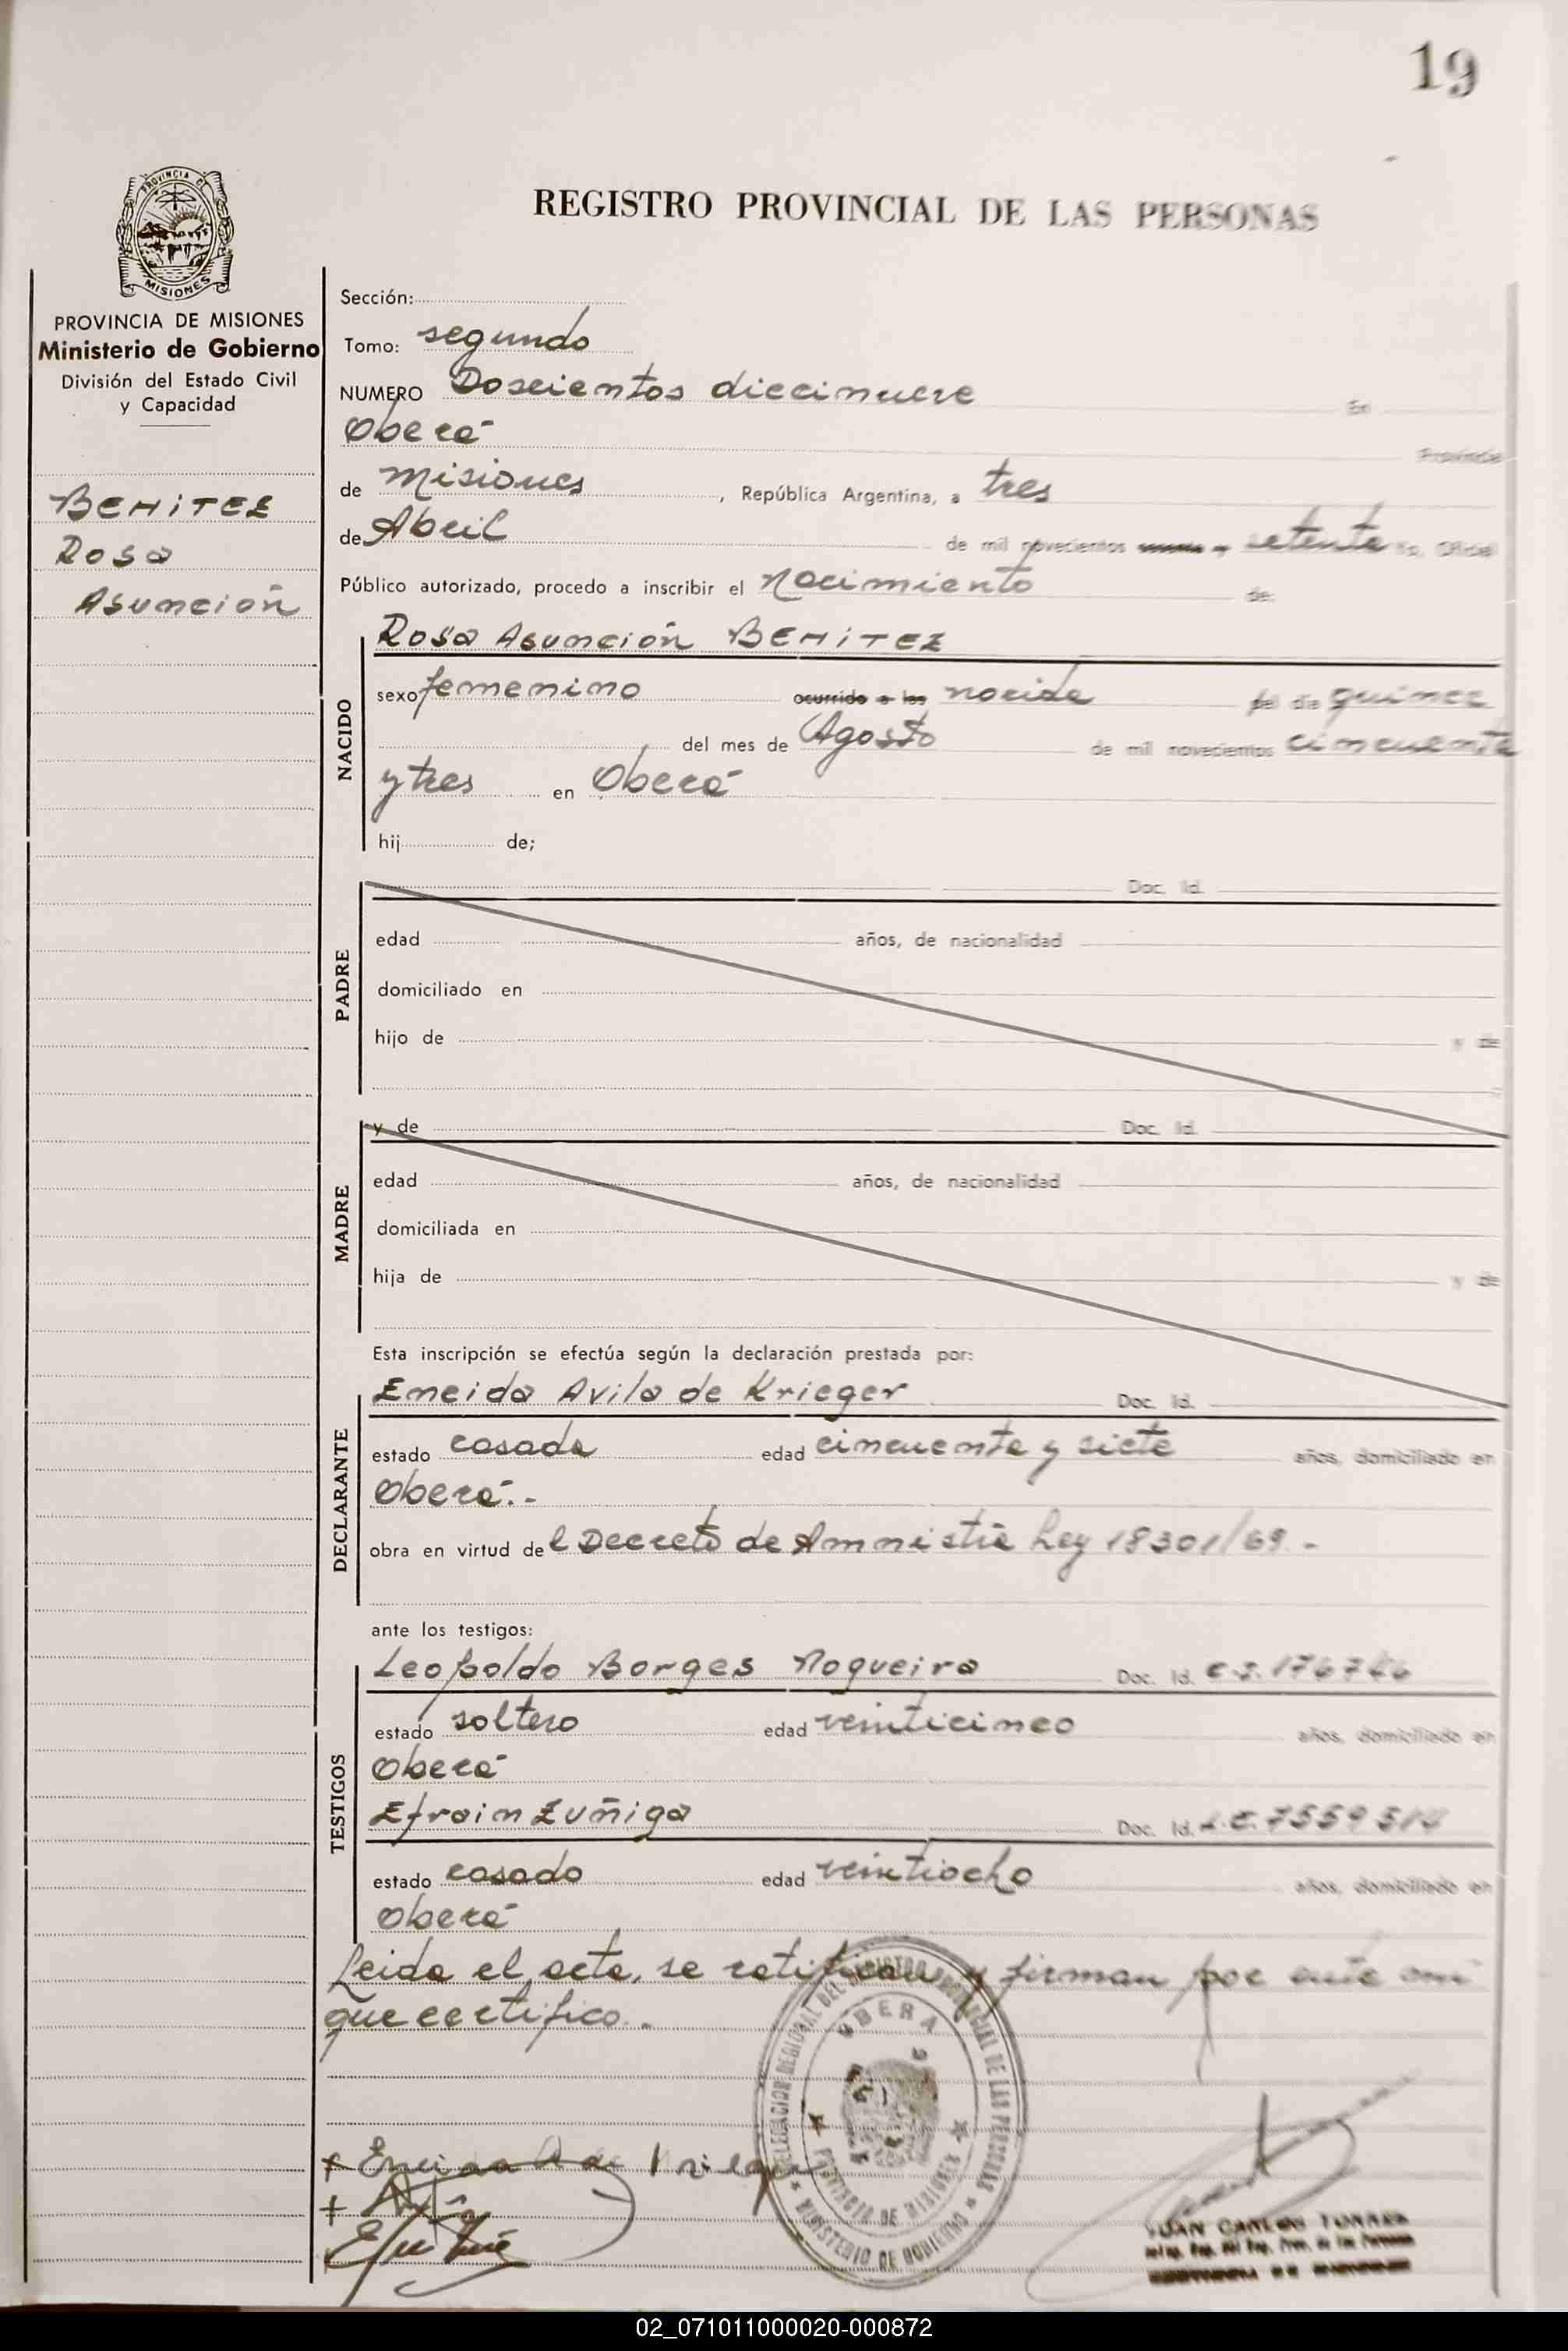 19
PROVINCIA DE
MISIONES
REGISTRO PROVINCIAL DE LAS PERSONAS
PROVINCIA DE MISIONES
Ministerio de Gobierno
División del Estado Civil
y Capacidad
BENITEZ
Rosa
Asunción
Sección:
Tomo: segundo
NUMERO Doscientos diecinueve En
Oberá Provincia
de Misiones, República Argentina, a tres
de Abril de mil novecientos setenta Yo, Oficial
Público autorizado, procedo a inscribir el Nacimiento de:
NACIDO
Rosa Asunción BENITEZ
sexo femenino ocurrido a las nacida el día quince
del mes de Agosto de mil novecientos cincuenta
y tres en Oberá
hij de;
PADRE
Doc. Id.
edad años, de nacionalidad
domiciliado en
hijo de y de
MADRE
y de Doc. Id.
edad años, de nacionalidad
domiciliada en
hija de y de
Esta inscripción se efectúa según la declaración prestada por:
DECLARANTE
Eneida Avila de Krieger Doc. Id.
estado casada edad cincuenta y siete años, domiciliado en
Oberá.-
obra en virtud del Decreto de Amnistía Ley 18301/69.-
ante los testigos:
TESTIGOS
Leopoldo Borges Nogueira Doc. Id. C.I. 176746
estado soltero edad veinticinco años, domiciliado en
Oberá
Efrain Zuñiga Doc. Id. L.E. 7559514
estado casado edad veintiocho años, domiciliado en
Oberá
Leida el acta, se ratifican y firman por ante mi
que certifico.
DELEGACION REGIONAL DEL REGISTRO PROVINCIAL DE LAS PERSONAS
OBERA
PROVINCIA DE MISIONES
MINISTERIO DE GOBIERNO
JUAN CARLOS TORRES
02_071011000020-000872